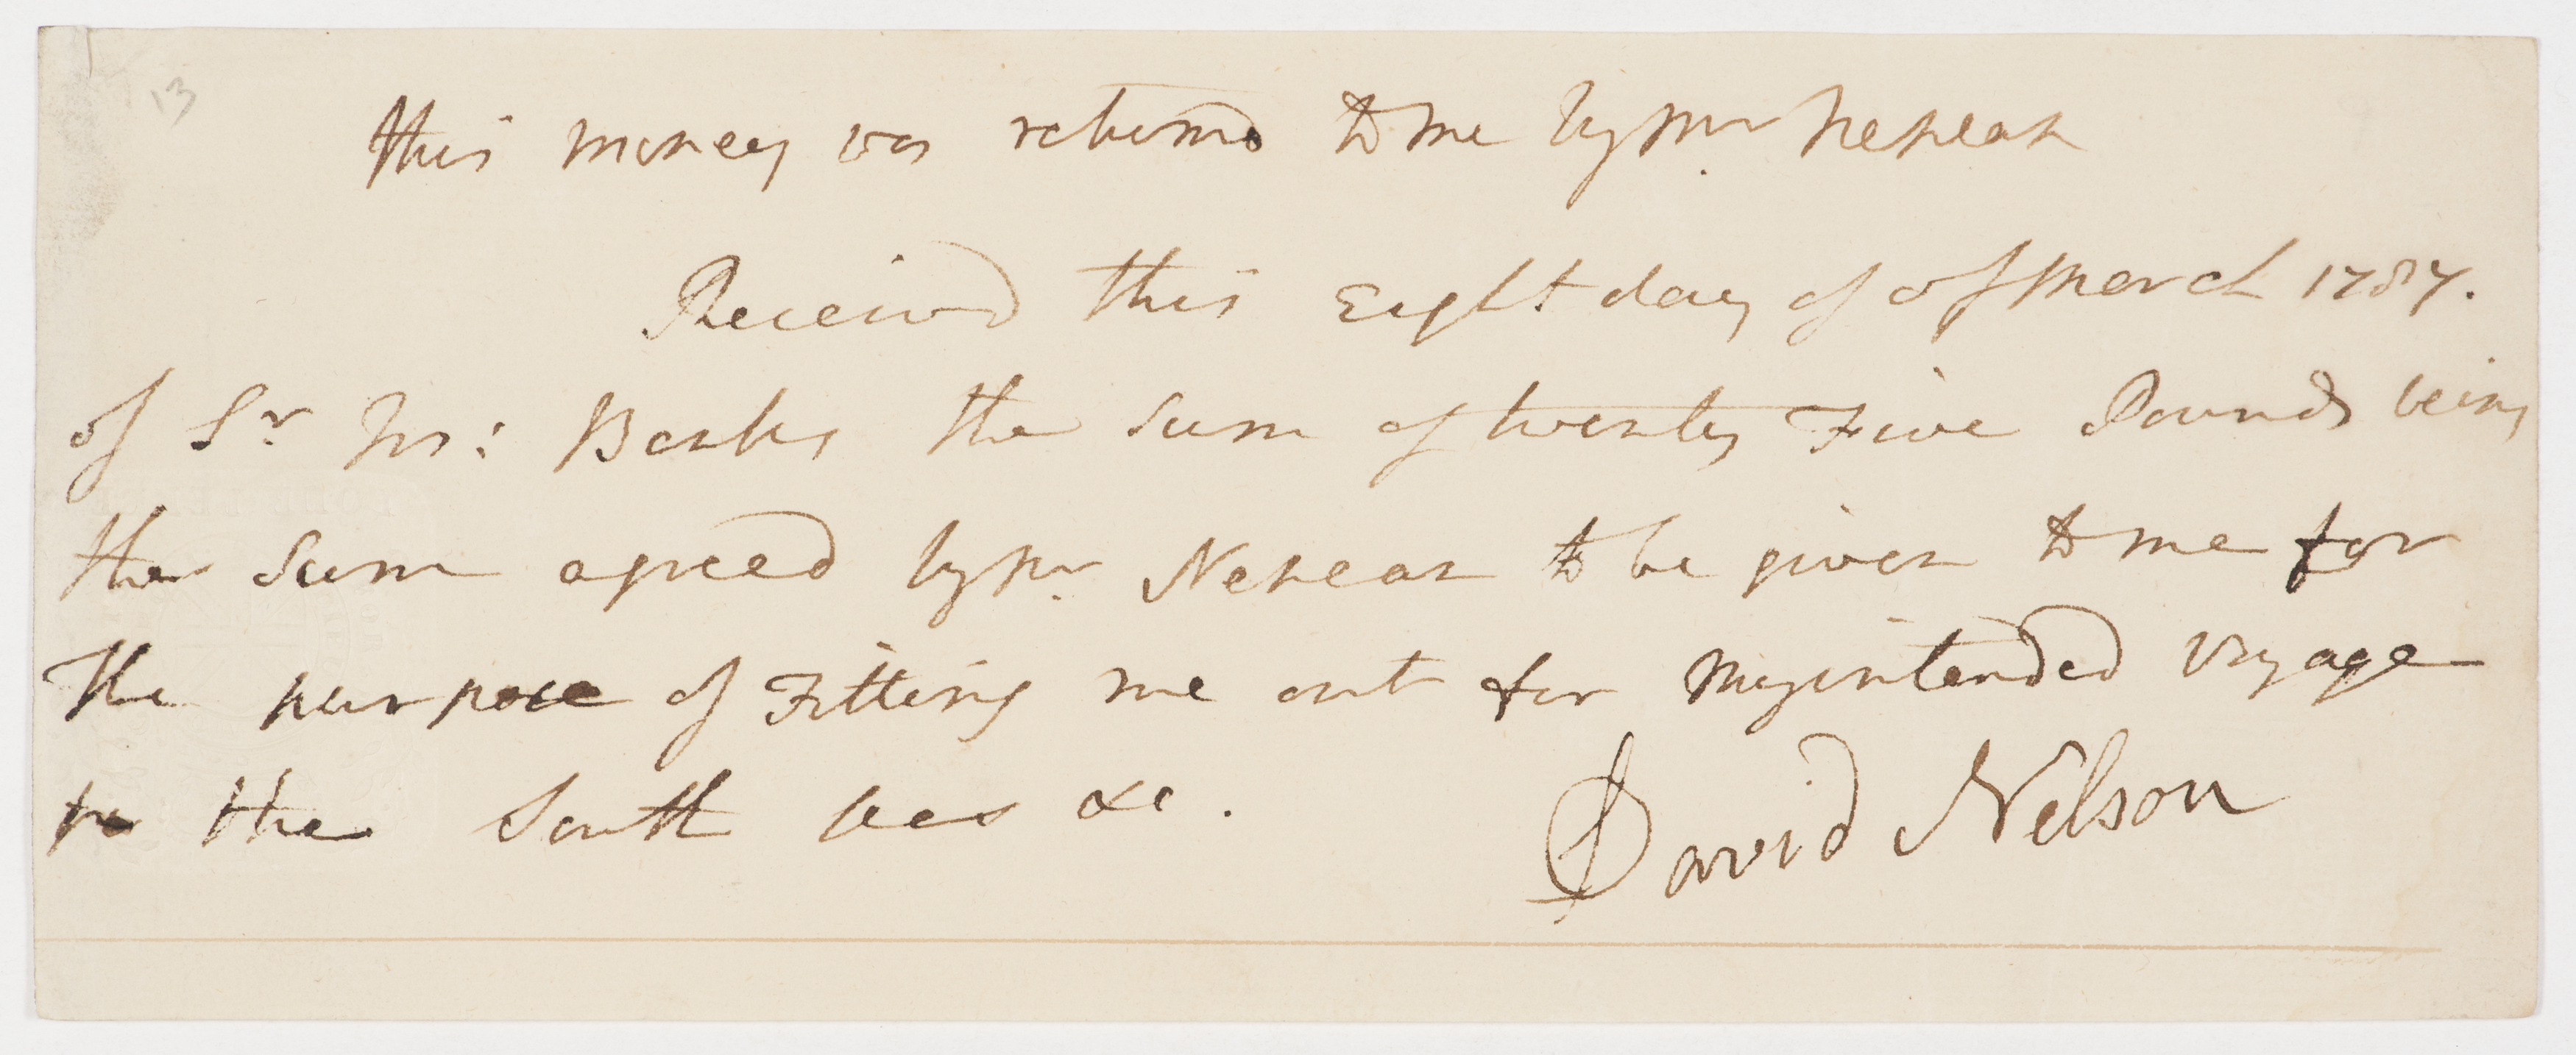 13
this money was returnd to me by Mr. Nepean
Received this Eight day of of March 1787.
of Sr Jos: Banks the Sum of twenty Five Pounds being
the Sum agreed by Mr. Nepean to be given to me for
the purpose of Fitting me out for my intended voyage
to the South seas &c.
David Nelson